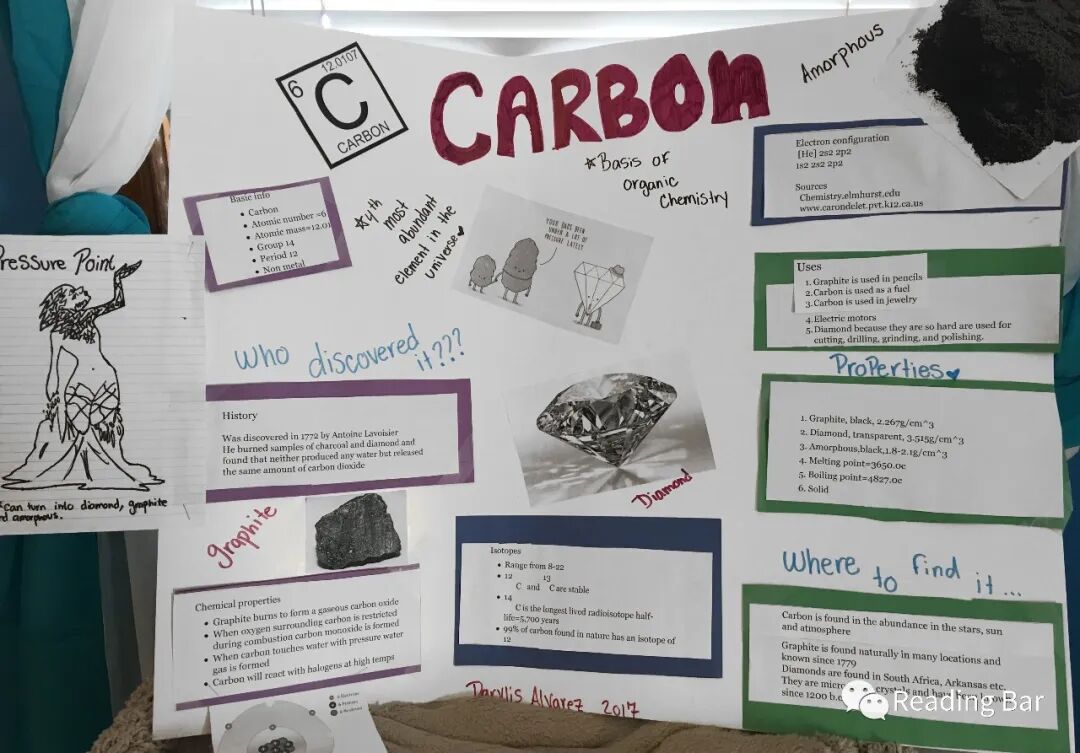 6
12.0107
C
CARBON
CARBON
Amorphous
*Basis of
organic
Chemistry
*4th
most
abundant
element in the
universe
YOUR DADS BEEN
UNDER A LOT OF
PRESSURE LATELY
Basic info
• Carbon
• Atomic number =6
• Atomic mass=12.01
• Group 14
• Period 12
• Non metal
Electron configuration
[He] 2s2 2p2
1s2 2s2 2p2
Sources
Chemistry.elmhurst.edu
www.carondelet.pvt.k12.ca.us
Pressure Point
*can turn into diamond, graphite
amorphous.
Uses
1. Graphite is used in pencils
2. Carbon is used as a fuel
3. Carbon is used in jewelry
4. Electric motors
5. Diamond because they are so hard are used for
cutting, drilling, grinding, and polishing.
Who discovered
it???
History
Was discovered in 1772 by Antoine Lavoisier
He burned samples of charcoal and diamond and
found that neither produced any water but released
the same amount of carbon dioxide
Properties
1. Graphite, black, 2.267g/cm^3
2. Diamond, transparent, 3.515g/cm^3
3. Amorphous,black,1.8-2.1g/cm^3
4. Melting point=3650.0c
5. Boiling point=4827.0c
6. Solid
Diamond
graphite
Chemical properties
• Graphite burns to form a gaseous carbon oxide
• When oxygen surrounding carbon is restricted
during combustion carbon monoxide is formed
• When carbon touches water with pressure water
gas is formed
• Carbon will react with halogens at high temps
Isotopes
• Range from 8-22
• 12 13
C and C are stable
• 14
C is the longest lived radioisotope half-
life=5,700 years
• 99% of carbon found in nature has an isotope of
12
Where to find it...
Carbon is found in the abundance in the stars, sun
and atmosphere
Graphite is found naturally in many locations and
known since 1779
Diamonds are found in South Africa, Arkansas etc.
They are crystals and
since 1200 b.c
Daryllis Alvarez 2017
Reading Bar